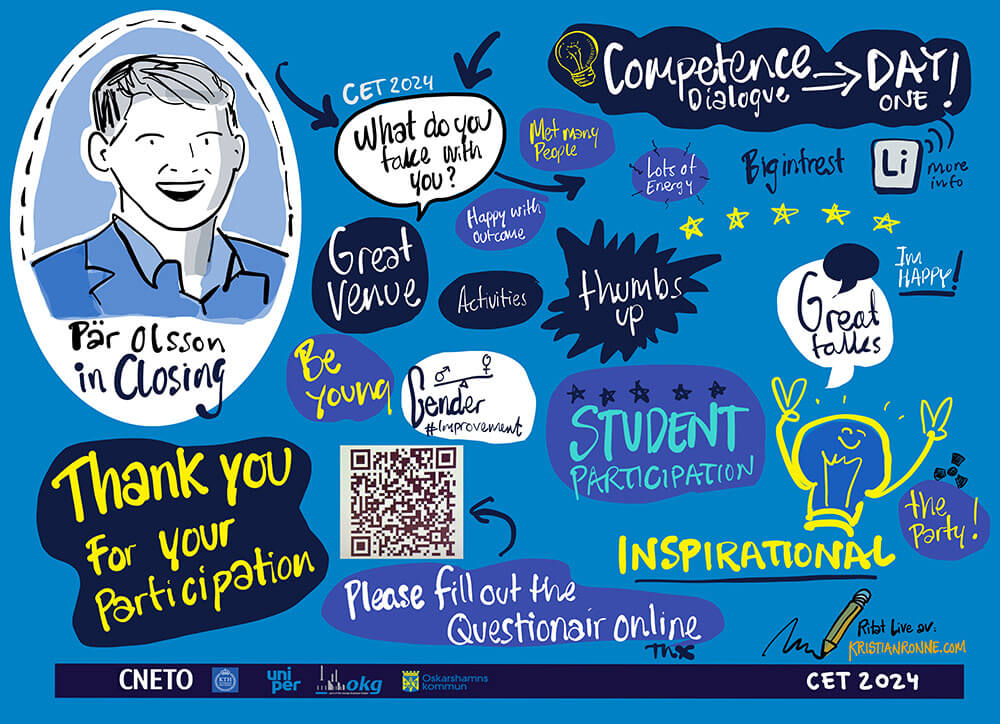 Competence
Dialogue
DAY!
ONE
CET 2024
What do you
take with
you?
Met many
People
Lots of
Energy
Big intrest
Li
more
info
Happy with
outcome
Great
venue
Activities
thumbs
up
Great
talks
Im
HAPPY!
Pär Olsson
in Closing
Be
young
Gender
#Improvement
STUDENT
PARTICIPATION
the
Party!
INSPIRATIONAL
Thank you
For your
Participation
Please fill out the
Questionair online
Thx
Ritat Live av:
KRISTIANRONNE.COM
CNETO
KTH
uni
per
okg
Oskarshamns
kommun
CET 2024